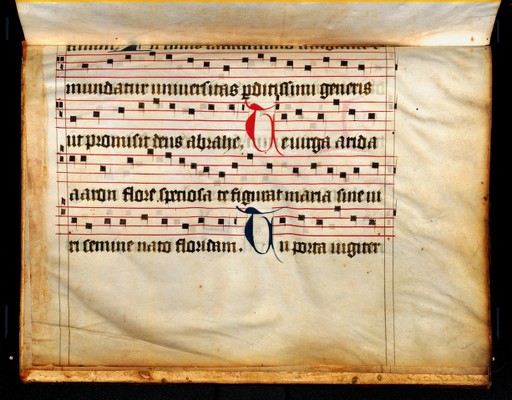 mundatur universitas perditissimi generis
ut promisit deus abrahe. Te virga arida
aaron flore speciosa te figurat maria sine vi
ri semine nato floridam. Tu porta iugiter